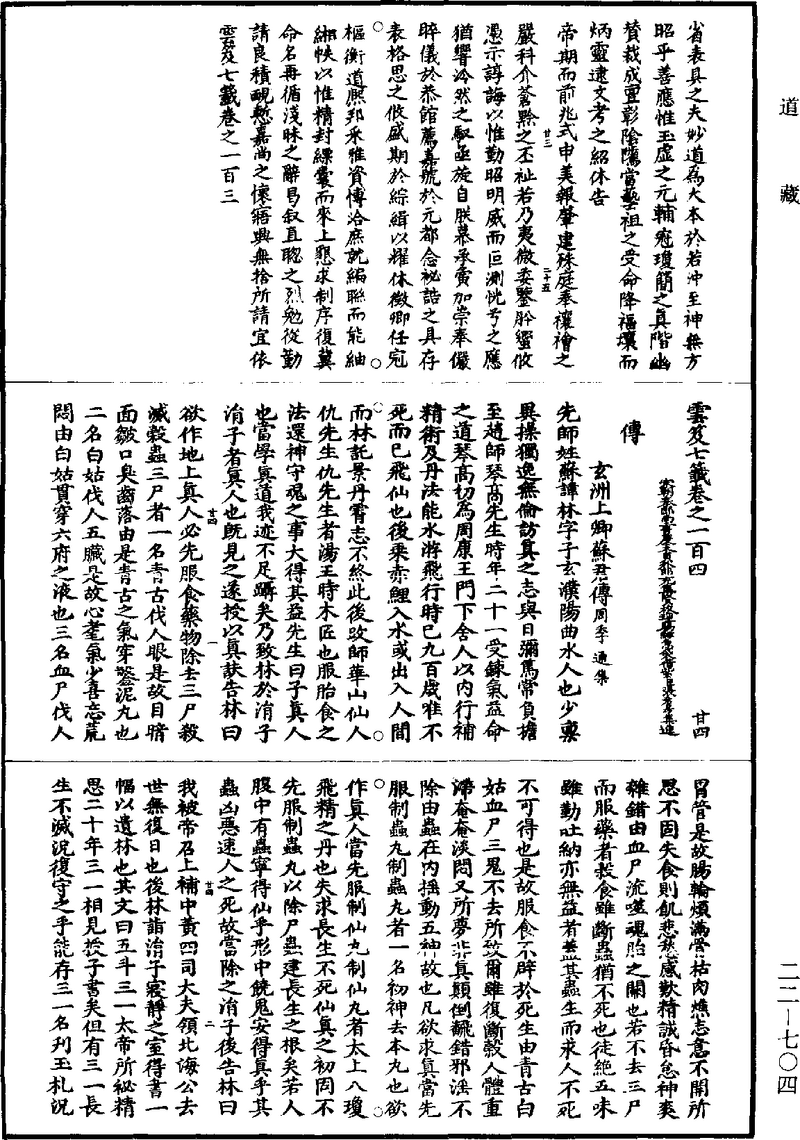 道藏
省表具之夫妙道為大本於若沖至神無方
昭乎善應惟玉虛之元輔冠瓊簡之真階幽
贊裁成靈彰陰騭當藝祖之受命降福壤而
炳靈逮文考之紹休告
帝期而前兆式申美報肇建殊庭奉禳禬之
廿三
嚴科介蒼黔之丕祉若乃夷徼委鑒肸蠁攸
二十五
憑示諄誨以惟勤昭明威而叵測恍兮之應
猶響泠然之馭亟旋自朕慕承夤加崇奉儼
睟儀於恭館薦嘉號於元都念祕誥之具存
表格思之攸盛期於綜緝以耀休徵卿任宛
樞衡道熙邦采雅資博洽庶就編聯而能紬
緗帙以惟精封縹囊而來上懇求制序復冀
命名再循淺昧之辭曷叙直聰之烈勉從勤
請良積靦愍嘉尚之懷寤興無捨所請宜依
雲笈七籤卷之一百三
雲笈七籤卷之一百四
廿四
傳
玄洲上卿蘇君傳周季通集
先師姓蘇諱林字子玄濮陽曲水人也少稟
異操獨逸無倫訪真之志與日彌篤常負擔
至趙師琴高先生時年二十一受鍊氣益命
之道琴高初為周康王門下舍人以內行補
精術及丹法能水游飛行時已九百歲唯不
死而已飛仙也後乘赤鯉入水或出入人間
而林託景丹霄志不終此後改師華山仙人
仇先生仇先生者湯王時木匠也服胎食之
法還神守魂之事大得其益先生曰子真人
也當學真道我迹不足躡矣乃致林於涓子
一
涓子者真人也既見之遂授以真訣告林曰
廿四
欲作地上真人必先服食藥物除去三尸殺
滅穀蟲三尸者一名青古伐人眼是故目暗
面皺口臭齒落由是青古之氣穿鑿泥丸也
二名白姑伐人五臟是故心耄氣少喜忘荒
悶由白姑貫穿六府之液也三名血尸伐人
胃管是故腸輪煩滿骨枯肉燋志意不開所
思不固失食則飢悲愁感歎精誠昏怠神爽
雜錯由血尸流噬魂胎之關也若不去三尸
而服藥者穀食雖斷蟲猶不死也徒絕五味
雖勤吐納亦無益者蓋其蟲生而求人不死
不可得也是故服食不辟於死生由青古白
姑血尸三鬼不去所致爾雖復斷穀人體重
滯奄奄淡悶又所夢非真顛倒翻錯邪淫不
除由蟲在內搖動五神故也凡欲求真當先
服制蟲丸制蟲丸者一名初神去本丸也欲
作真人當先服制仙丸制仙丸者太上八瓊
飛精之丹也夫求長生不死仙真之初罔不
先服制蟲丸以除尸蟲建長生之根矣若人
腹中有蟲寧得仙乎形中饒鬼安得真乎其
蟲凶惡速人之死故當除之涓子後告林曰
廿四
二
我被帝召上補中黃四司大夫領北海公去
世無復日也後林詣涓子寢靜之室得書一
幅以遺林也其文曰五斗三一太帝所祕精
思二十年三一相見授子書矣但有三一長
生不滅況復守之乎能存三一名刊玉札況
二二—七〇四